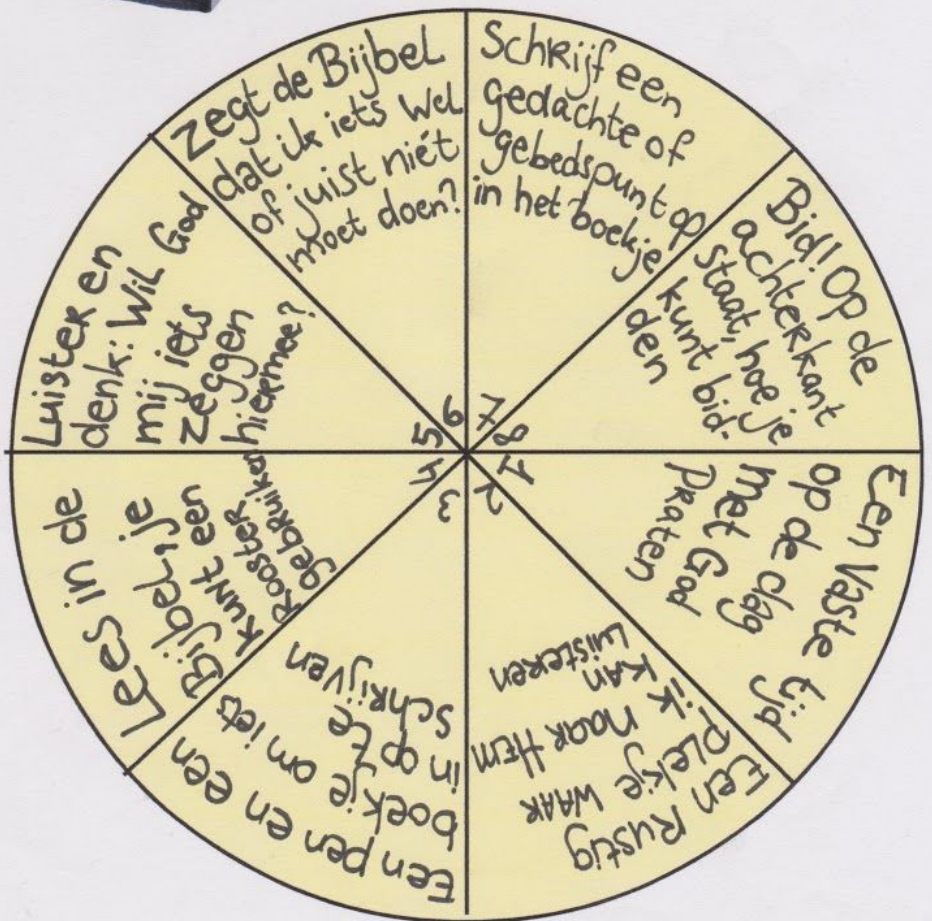 1
Een vaste tijd
op de dag
met God
praten
2
Een Rustig
plekje waar
ik naar Hem
kan
luisteren
3
Een pen en een
boekje om iets
in op te
schrijven
4
Lees in de
Bijbel, je
kunt een
Rooster
gebruiken
5
Luister en
denk: Wil God
mij iets
zeggen
hiermee?
6
Zegt de Bijbel
dat ik iets wel
of juist niét
moet doen?
7
Schrijf een
gedachte of
gebedspunt op
in het boekje
8
Bid! Op de
achterkant
staat, hoe je
kunt bid-
den